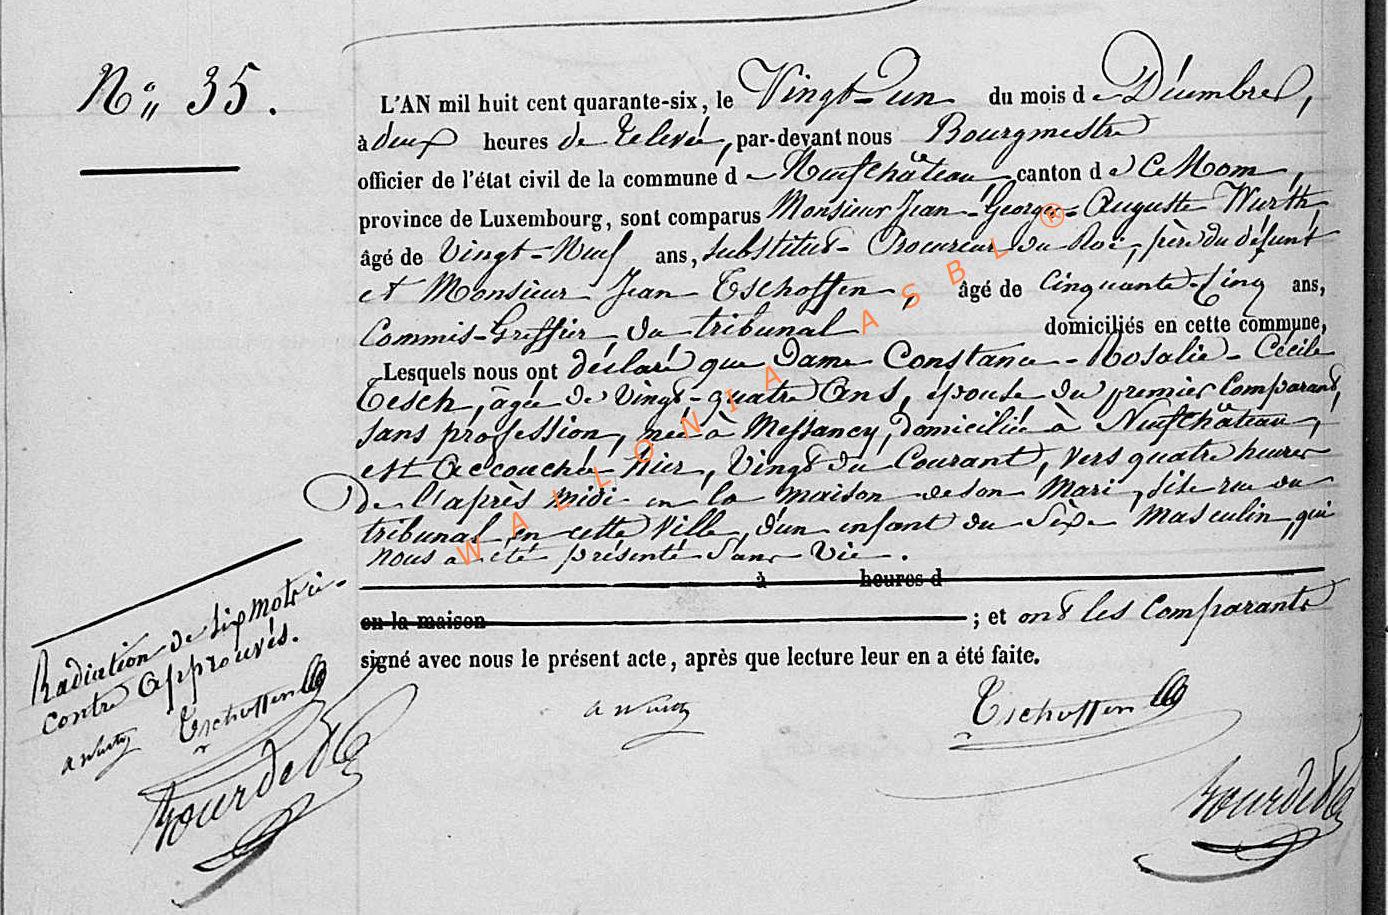 N° 35.
L'AN mil huit cent quarante-six, le Vingt-un du mois de Décembre,
à deux heures de relevée, par-devant nous Bourgmestre
officier de l'état civil de la commune de Neufchâteau, canton de ce Nom,
province de Luxembourg, sont comparus Monsieur Jean-George-Auguste Wurth,
âgé de Vingt-Neuf ans, substitut-Procureur du Roi, père du défunt
et Monsieur Jean Tschoffen, âgé de Cinquante-Cinq ans,
Commis-Greffier du tribunal domiciliés en cette commune,
Lesquels nous ont déclaré que Dame Constance-Rosalie-Cécile
Tesch, âgée de Vingt-quatre Ans, épouse du premier Comparant,
sans profession, née à Messancy, domiciliée à Neufchâteau,
est Accouchée hier, Vingt du Courant, vers quatre heures
De l'après midi en la maison de son Mari, sise rue du
tribunal, en cette Ville, d'un enfant du Sèxe Masculin, qui
nous a été présenté Sans Vie.
à heures d
en la maison ; et ont les Comparants
signé avec nous le présent acte, après que lecture leur en a été faite.
A Wurth Tschoffen
Bourdels
Radiation de six mots ci-
contre Approuvés.
A Wurth Tschoffen
WALLONIA ASBL ®